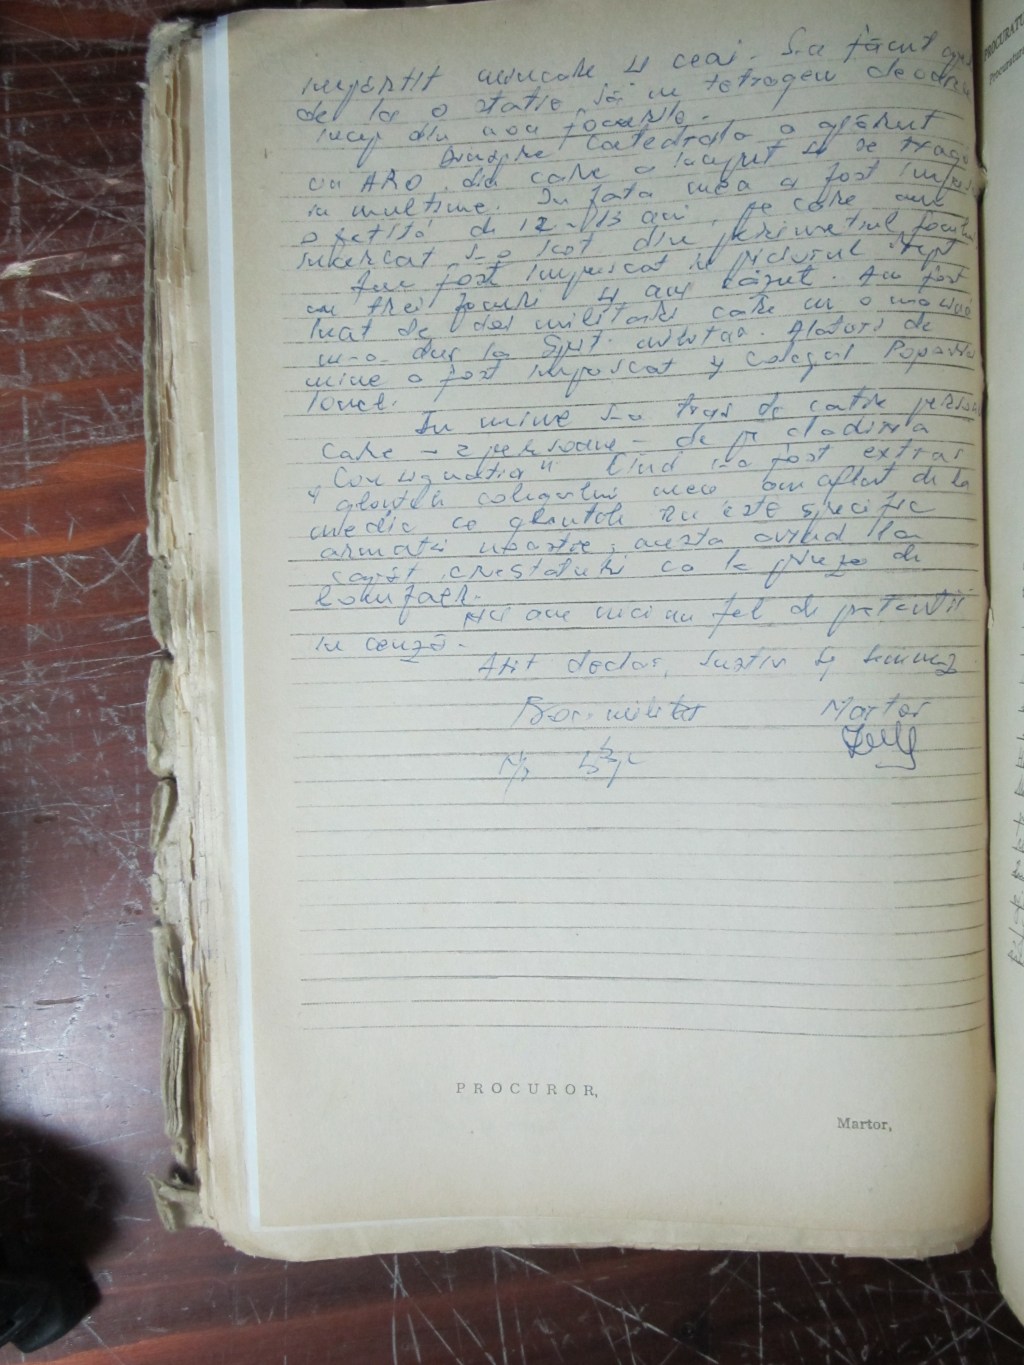 împărțit mîncare și ceai. S-a făcut apel
de la o stație să ne retragem deoarece
încep din nou focurile.
Dinspre Catedrala a apărut
un ARO din care a început să se tragă
în mulțime. În fața mea a fost împușcată
o fetiță de 12-13 ani, pe care am
încercat s-o scot din perimetrul focului
Am fost împușcat în piciorul drept
cu trei focuri și am căzut. Am fost
luat de doi militari care cu o mașină
m-a dus la Spit. militar. Alături de
mine a fost împușcat și colegul Popovici
Ionel.
În mine s-a tras de catre persoane
care - 2 persoane - de pe cladirea
"Consignația". Cînd s-a fost extras
glontele colegului meu am aflat de la
medic ca glontele nu este specific
armatei noastre, acesta avînd la
capăt crestături ca la piureza de
Nu am nici un fel de pretentii
în cauză.
Atît declar, susțin și semnez
Proc. militar Martor
PROCUROR,
Martor,
PROCURATU
Procuratura